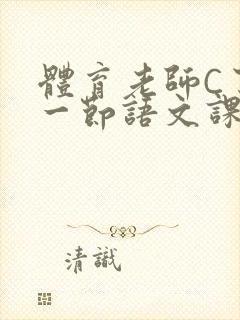 體育老師C
一節語文課
清識